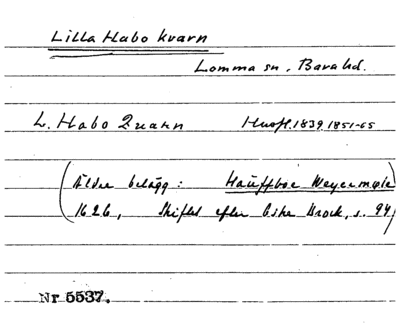 Lilla Habo kvarn
Lomma sn, Bara hd.
L. Habo Quarn Husfl. 1839, 1851-65
(Äldre belägg: Hauffboe Weyermøle
1626, Skiftet efter Eske Brock, s. 94)
Nr 5537.